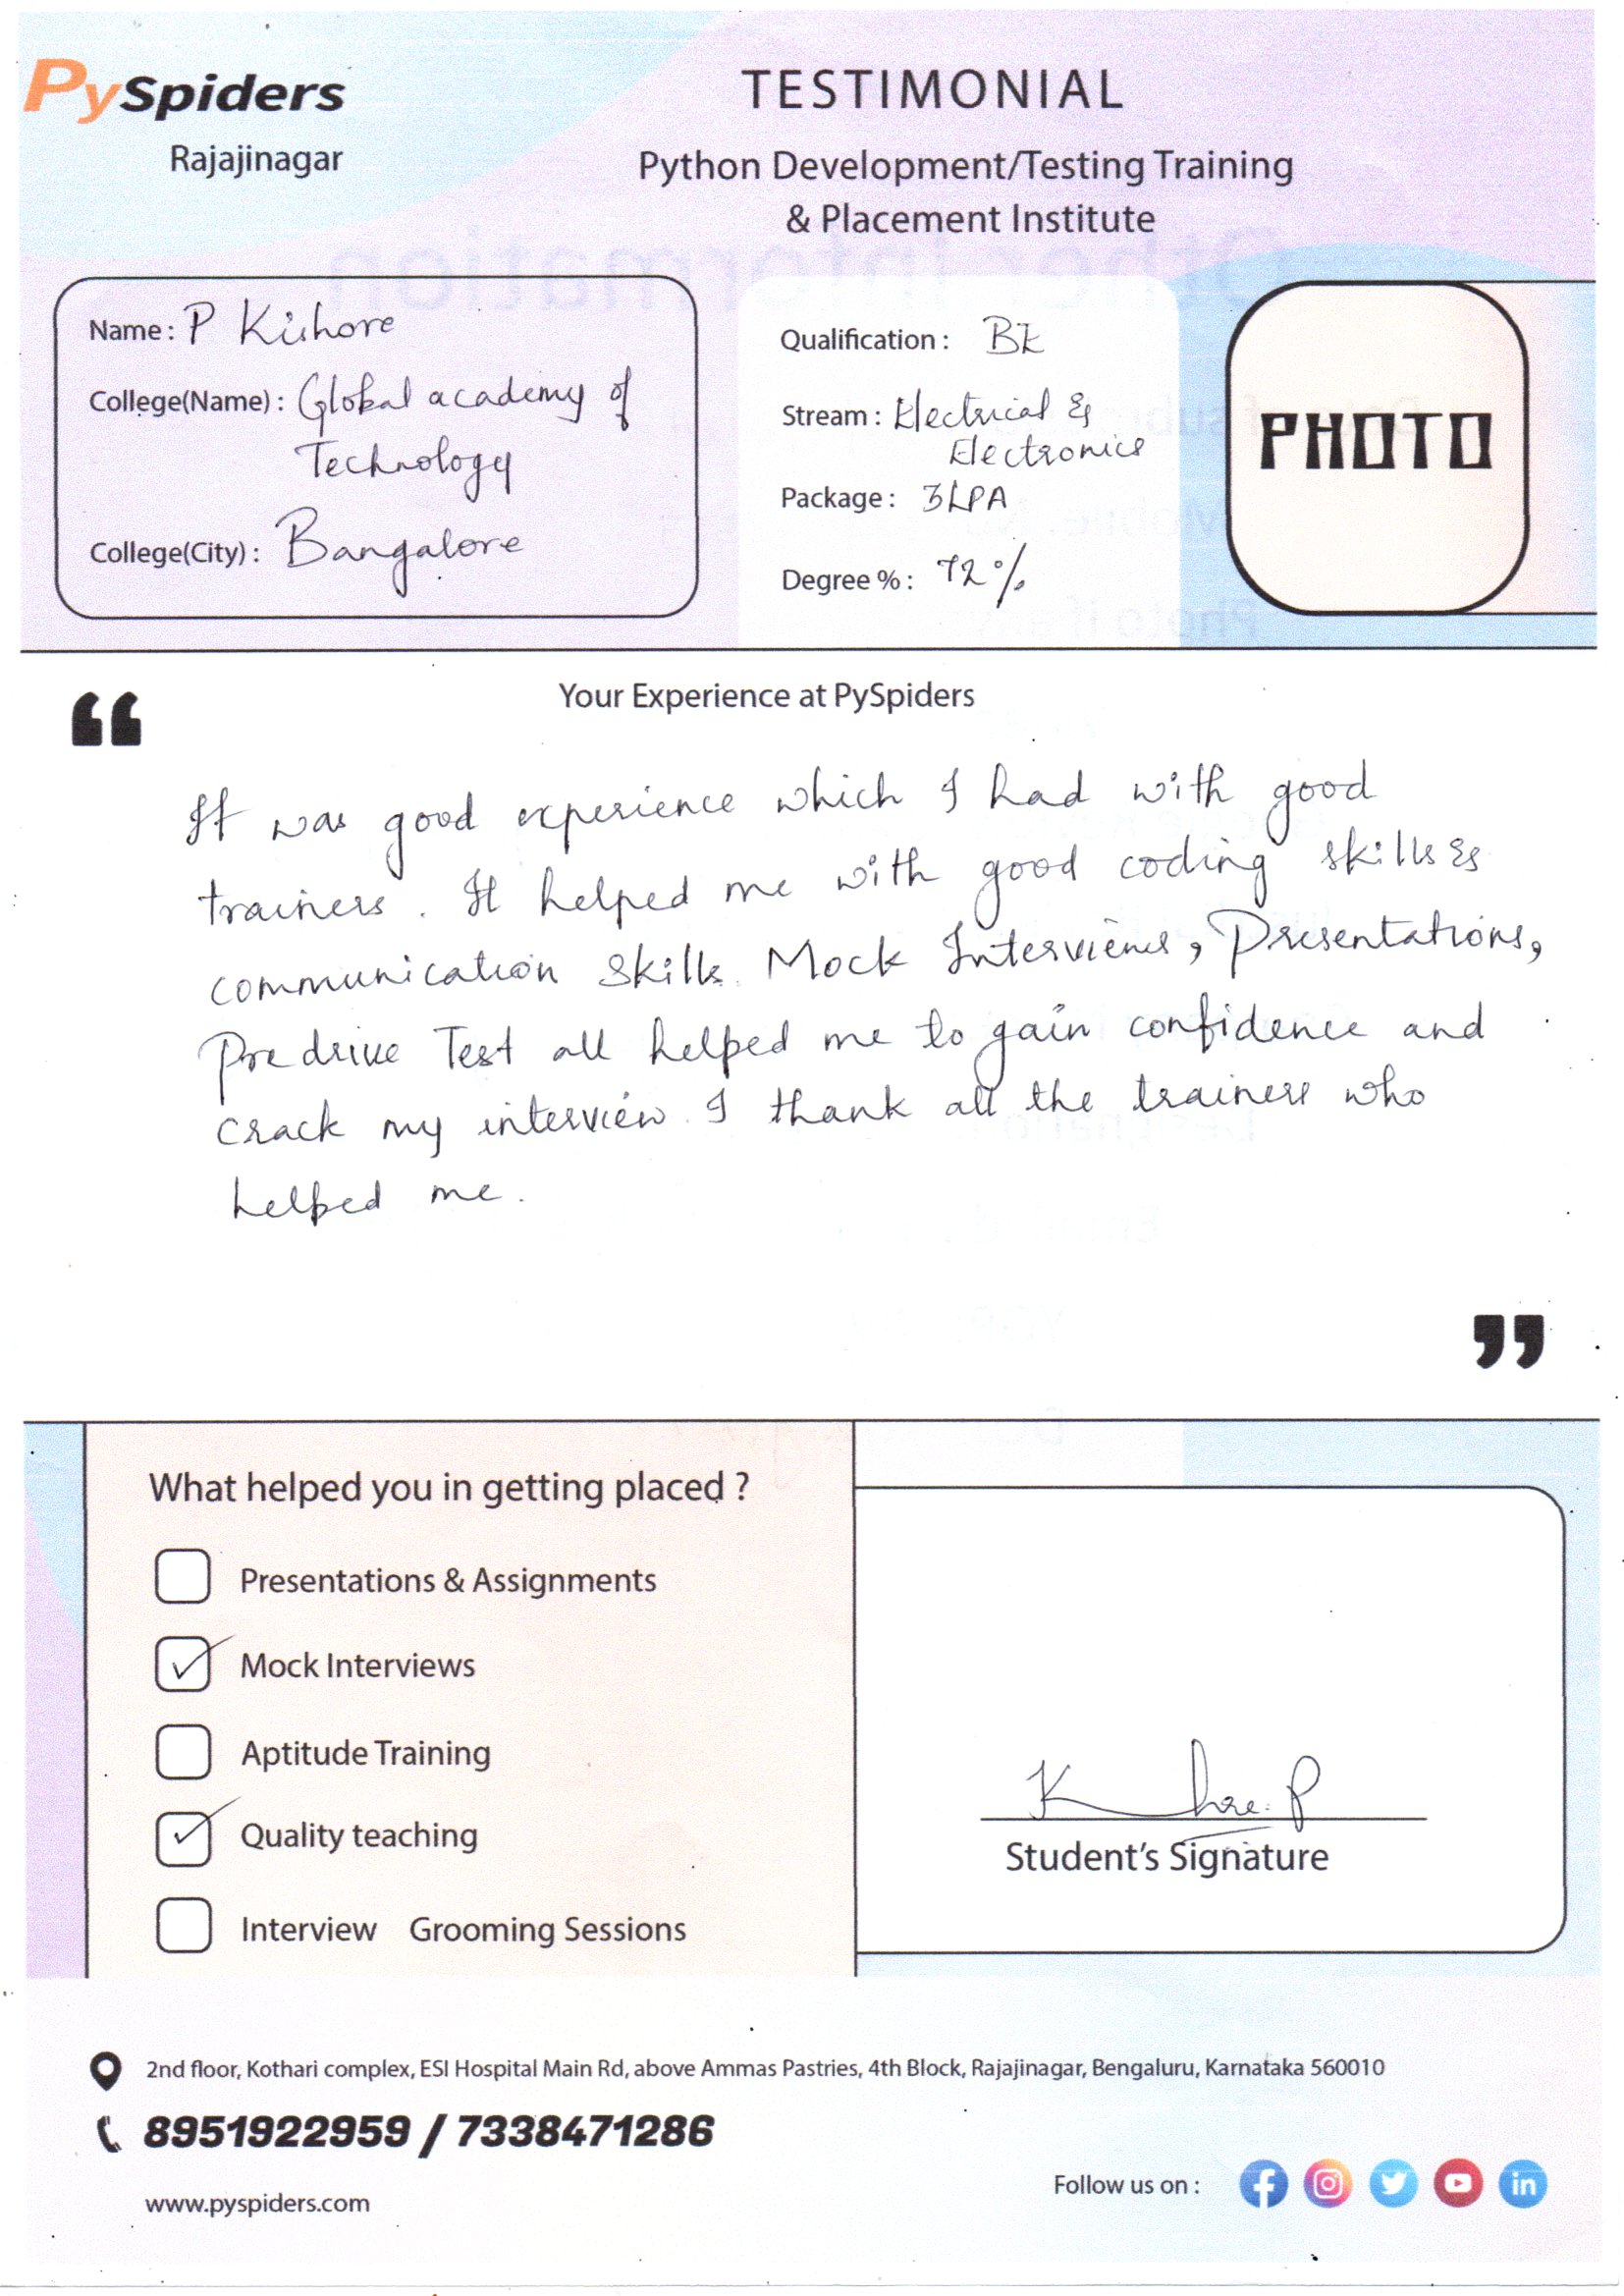 PySpiders
Rajajinagar
TESTIMONIAL
Python Development/Testing Training
& Placement Institute
Name : P Kishore
College(Name) : Global academy of
Technology
College(City) : Bangalore
Qualification : BE
Stream : Electrical &
Electronics
Package : 3LPA
Degree % : 72%
PHOTO
Your Experience at PySpiders
“
It was good experience which I had with good
trainers. It helped me with good coding skills &
communication skills. Mock Interviews, Presentations,
Predrive Test all helped me to gain confidence and
crack my interview. I thank all the trainers who
helped me.
”
What helped you in getting placed ?
Presentations & Assignments
Mock Interviews
Aptitude Training
Quality teaching
Interview Grooming Sessions
Student's Signature
2nd floor, Kothari complex, ESI Hospital Main Rd, above Ammas Pastries, 4th Block, Rajajinagar, Bengaluru, Karnataka 560010
8951922959 / 7338471286
www.pyspiders.com
Follow us on :